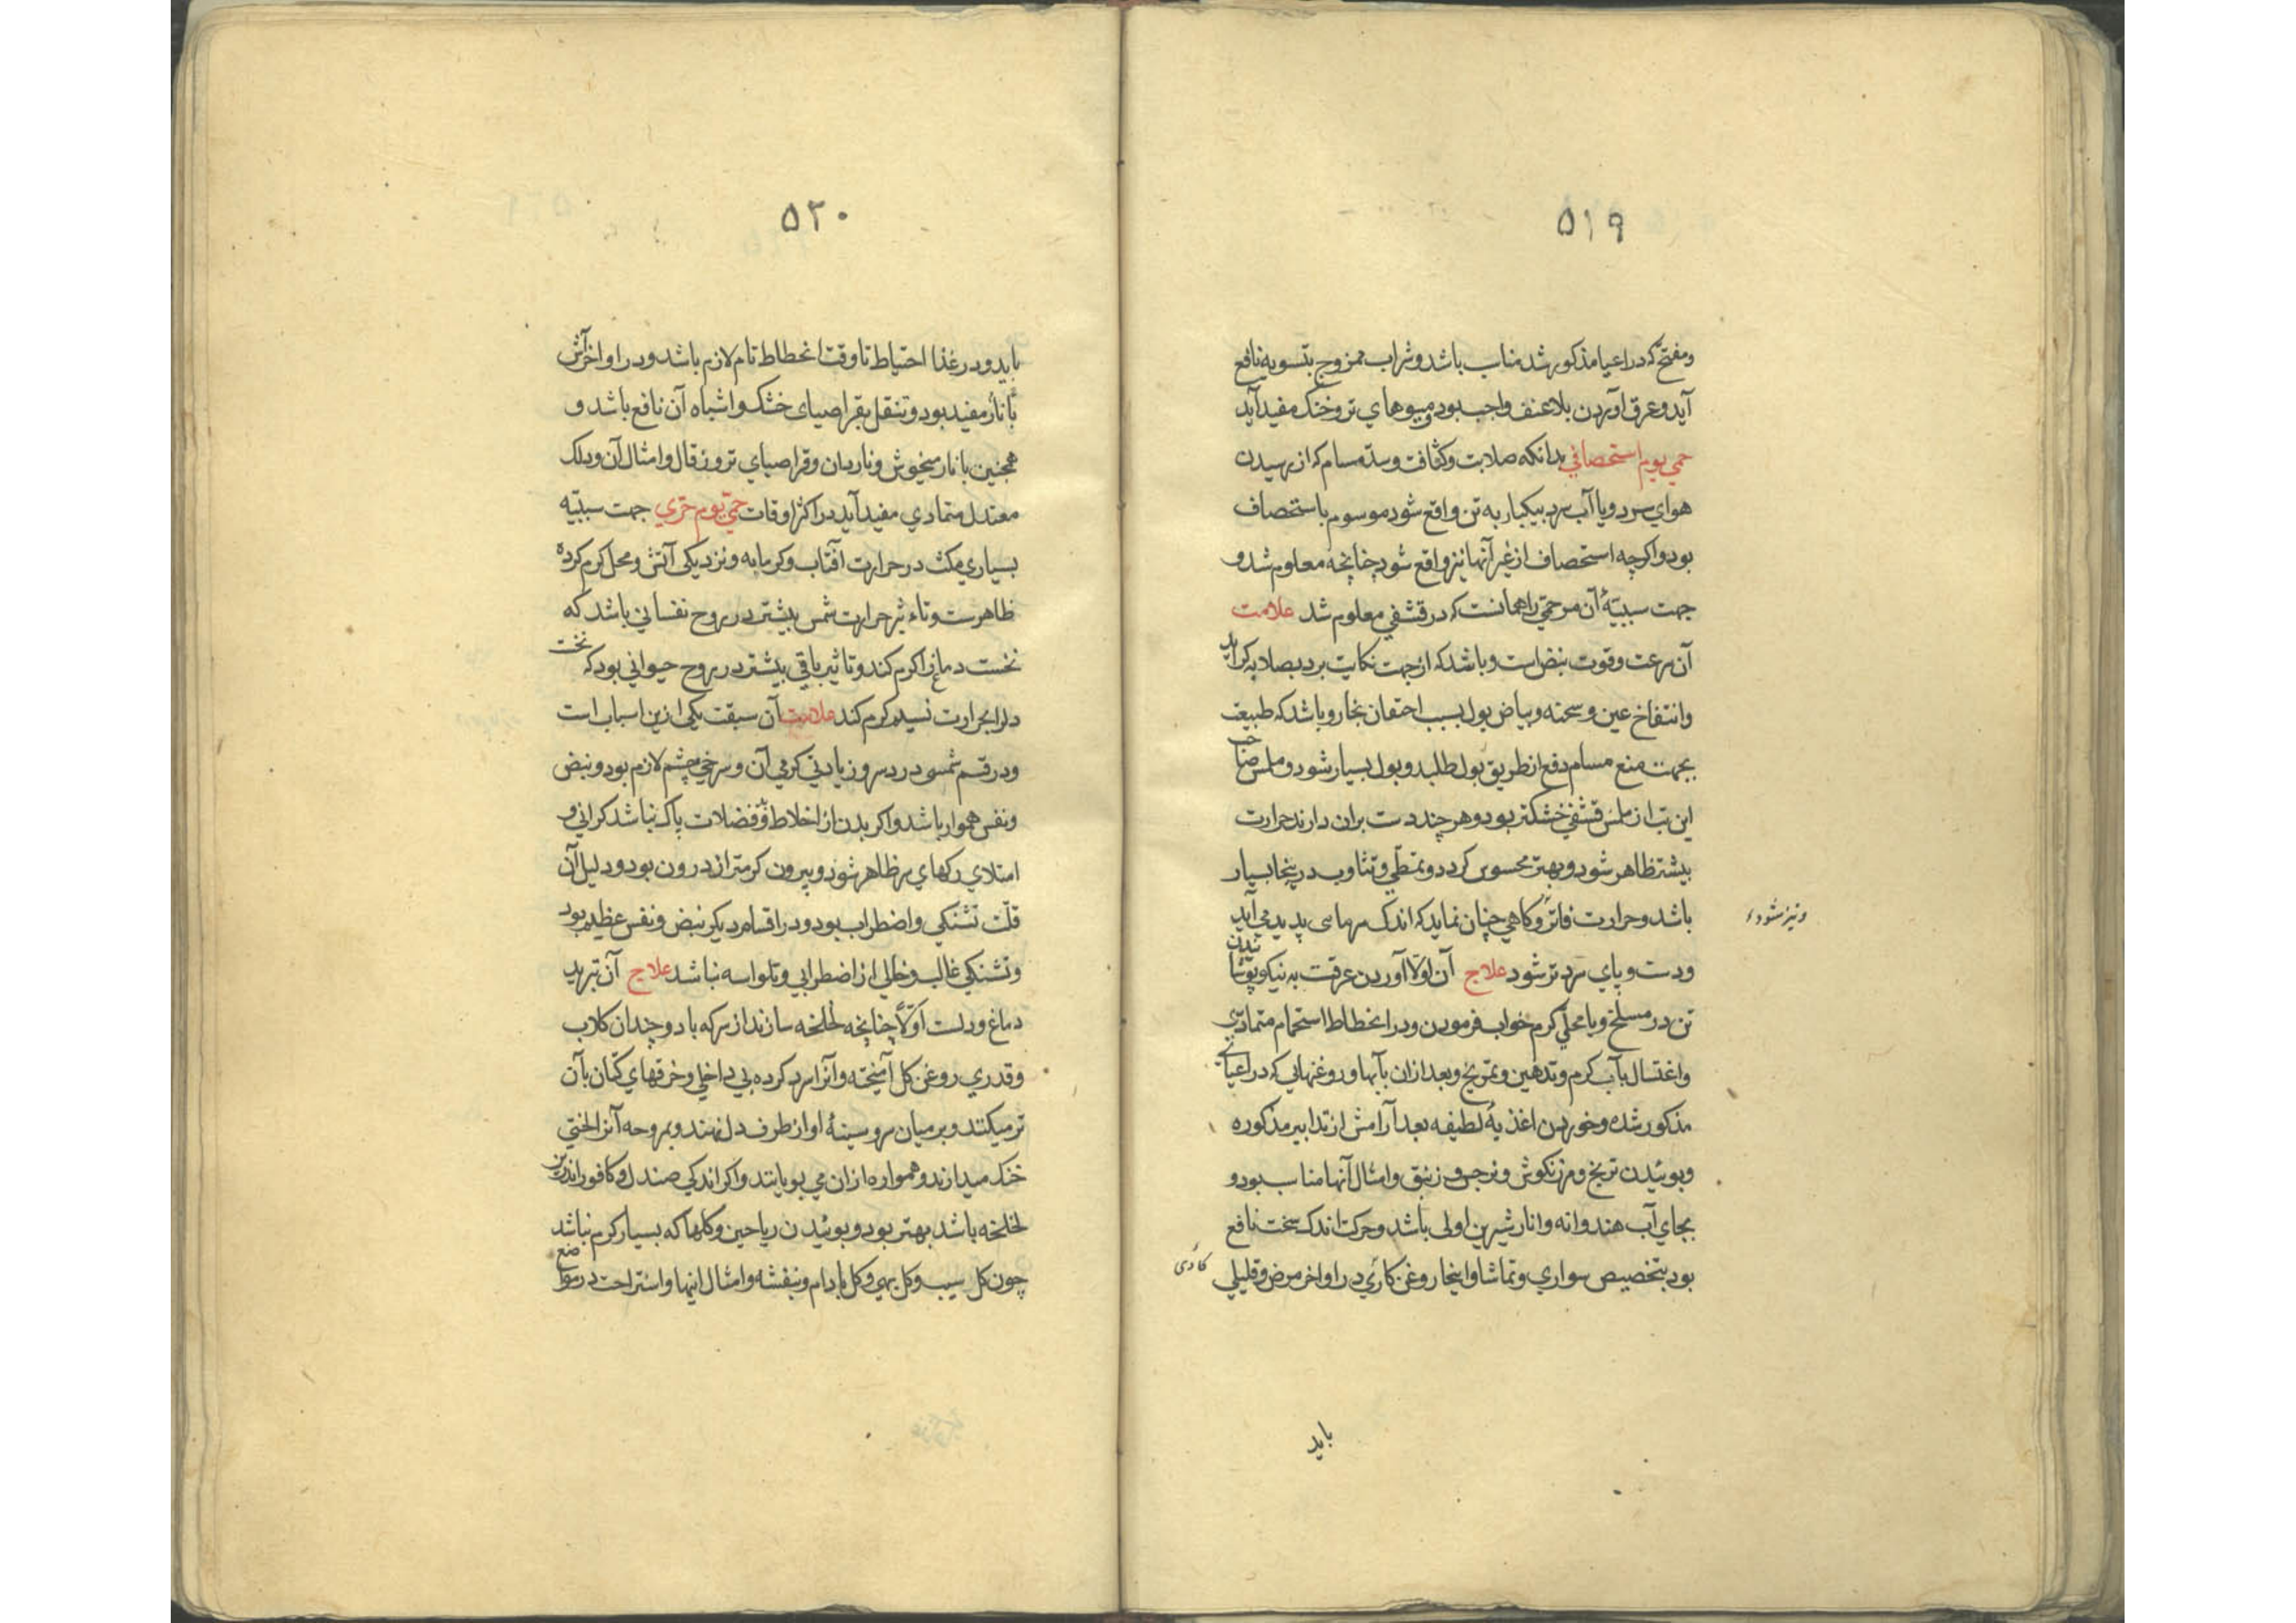 ۵۱۹
ومفتح که در اعیا مذکور شد مناسب باشد و شراب ممزوج بتسویه نافع
آید و عرق آوردن بلا عنف واجب بود و میوهای تر و خنک مفید آید
حمی یوم استحصافی بدانکه صلابت و کثافت و سدّه مسام که از رسیدن
هوای سرد و یا آب سرد بیکبار به تن واقع شود موسوم باستحصاف
بود و اکرچه استحصاف از غیر آنها نیز واقع شود چنانچه معلوم شد و
جهت سببیّهٔ آن مر حمّی را همانست که در قشفی معلوم شد علامت
آن سرعت و قوت نبض است و باشد که از جهت نکایت برد بصلابه کراید
وانتفاخ عین و سحنه و بیاض بول بسبب احتقان بخار و باشد که طبیعت
بجهت منع مسام دفع از طریق بول طلبد و بول بسیار شود و ملمس صاحب
این تب از ملمس قشفی خشکتر بود و هر چند دست بران دارند حرارت
بیشتر ظاهر شود و بهتر محسوس کردد و تمطّی و تثاوب درینجا بسیار
باشد و حرارت فاتر و کاهی چنان نماید که اندک سرمای پدید می آید
ونیز شود
ودست و پای سرد تر شود علاج آن اوّلا آوردن عرقت به نیکو پوشانیدن
تن در مسلخ و یا محلّی کرم خواب فرمودن و در انحطاط استحمام متمادی
واغتسال بآب کرم و تدهین و تمریخ و بعد ازان بآبها و روغنهایی که در اعیای
مذکور شده و خوردن اغذیهٔ لطیفه بعد آرامش از تدابیر مذکوره
وبوئیدن ترنج و مرزنکوش و نرجس و زنبق و امثال آنها مناسب بود و
بجای آب هندوانه و انار شیرین اولی باشد و حرکت اندک سخت نافع
بود بتخصیص سواری و تماشا و اینجا روغن کاری در اواخر مرض و قلیلی
کادی
باید
۵۲۰
باید و در غذا احتیاط تا وقت انحطاط تام لازم باشد و در اواخر آش
با نار مفید بود و تنقل بقراصیای خشک و اشباه آن نافع باشد و
همچنین با نار میخوش و ناردان و قراصیای تر و زقال و امثال آن و دلک
معتدل متمادی مفید آید در اکثر اوقات حمّی یوم حرّی جهت سببیّه
بسیاری مکث در حرارت آفتاب و کرمابه و نزدیکی آتش و محل کرم کرده
ظاهرست و تاءثیر حرارت شمس بیشتر در روح نفسانی باشد که
نخست دماغ را کرم کند و تاثیر باقی بیشتر در روح حیوانی بود که نخست
دلرا بحرارت نسیم کرم کند علامت آن سبقت یکی ازین اسباب است
ودر قسم شمسی درد سر و زیادتی کرمی آن و سرخی چشم لازم بود و نبض
ونفس هموار باشد و اکر بدن از اخلاط و فضلات پاک نباشد کرانی و
امتلای رکهای سر ظاهر شود و بیرون کرمتر از درون بود و دلیل آن
قلّت تشنکی و اضطراب بود و در اقسام دیکر نبض و نفس عظیم بود
وتشنکی غالب و خالی از اضطرابی و تلواسه نباشد علاج آن تبرید
دماغ و دلست اوّلاً چنانچه لخلخه سازند از سرکه با دو چندان کلاب
وقدری روغن کل آمیخته و آنرا سرد کرده بی داخلی و خرقهای کتان بآن
تر میکنند و بر میان سر و سینهٔ او از طرف دل نهند و بمروحه آنرا لختی
خنک میدارند و همواره ازان می بویانند و اکر اندکی صندل و کافور اندرین
لخلخه باشد بهتر بود و بوئیدن ریاحین و کلها که بسیار کرم نباشد
چون کل سیب و کل بهی و کل بادام و بنفشه و امثال اینها و استراحت در مواضع